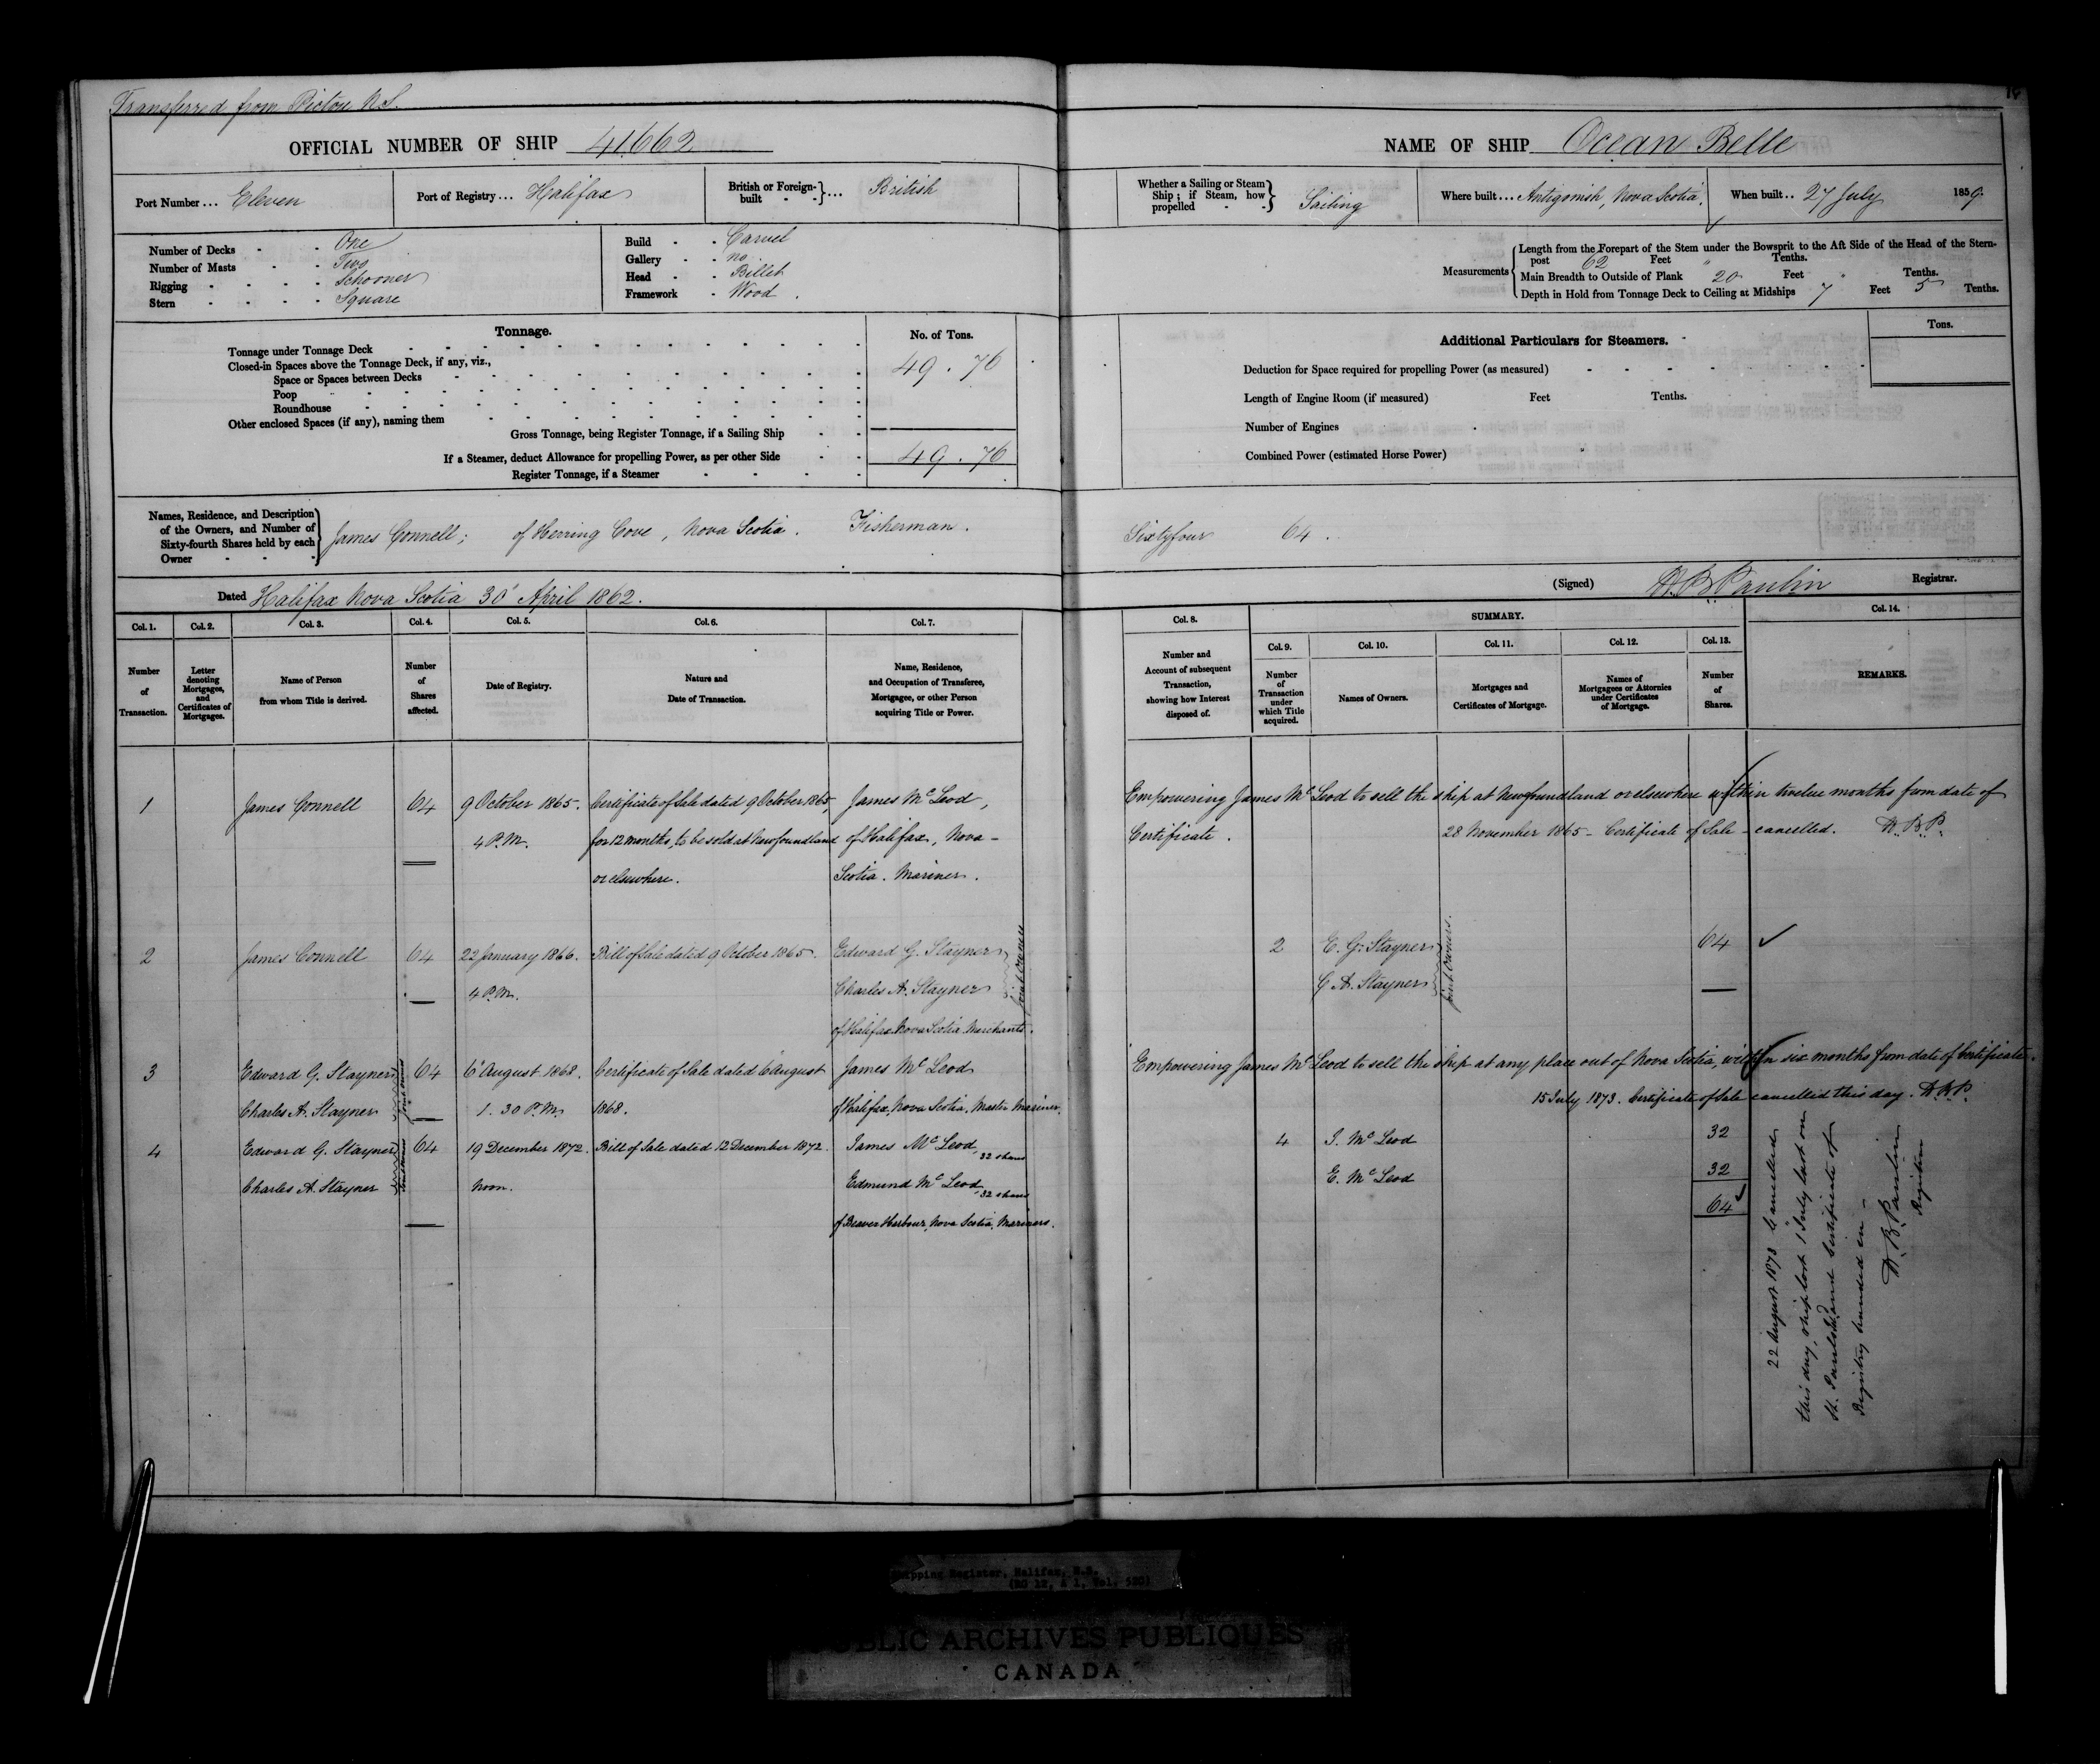 Transferred from Pictou N.S.
OFFICIAL NUMBER OF SHIP 41662
Port Number ... Eleven
Port of Registry ... Halifax
British or Foreign-built } ... British
Number of Decks - - One
Number of Masts - - Two
Rigging - - - - Schooner
Stern - - - - Square
Build - - Carvel
Gallery - - no.
Head - - Billet
Framework - Wood.
Tonnage.
No. of Tons.
Tonnage under Tonnage Deck
49.76
Closed-in Spaces above the Tonnage Deck, if any, viz.,
Space or Spaces between Decks
Poop
Roundhouse
Other enclosed Spaces (if any), naming them
Gross Tonnage, being Register Tonnage, if a Sailing Ship
49.76
If a Steamer, deduct Allowance for propelling Power, as per other Side
Register Tonnage, if a Steamer
Names, Residence, and Description
of the Owners, and Number of
Sixty-fourth Shares held by each
Owner
James Connell; of Herring Cove, Nova Scotia. Fisherman.
Dated Halifax Nova Scotia 30 April 1862.
Col. 1. Col. 2. Col. 3. Col. 4. Col. 5. Col. 6. Col. 7.
Number
of
Transaction.
Letter
denoting
Mortgages,
and
Certificates of
Mortgages.
Name of Person
from whom Title is derived.
Number
of
Shares
affected.
Date of Registry.
Nature and
Date of Transaction.
Name, Residence,
and Occupation of Transferee,
Mortgagee, or other Person
acquiring Title or Power.
1 James Connell 64 9 October 1865. Certificate of Sale dated 9 October 1865, James McLeod,
4 P.M. for 12 months, to be sold at Newfoundland of Halifax, Nova-
or elsewhere. Scotia. Mariner.
2 James Connell 64 22 January 1866. Bill of Sale dated 9 October 1865. Edward G. Stayner
4 P.M. Charles A. Stayner
Joint Owners
of Halifax Nova Scotia Merchants.
3 Edward G. Stayner 64 6 August 1868. Certificate of Sale dated 6 August James McLeod
Charles A. Stayner 1.30 P.M. 1868. of Halifax, Nova Scotia, Master Mariner.
Joint Owners
4 Edward G. Stayner 64 19 December 1872. Bill of Sale dated 12 December 1872. James McLeod, 32 shares
Charles A. Stayner noon. Edmund McLeod, 32 shares
Joint Owners
of Beaver Harbour, Nova Scotia, Mariners.
NAME OF SHIP Ocean Belle
Whether a Sailing or Steam
Ship; if Steam, how
propelled
Sailing
Where built ... Antigonish, Nova Scotia.
When built .. 27 July 1859.
Measurements
Length from the Forepart of the Stem under the Bowsprit to the Aft Side of the Head of the Stern-
post 62 Feet " Tenths.
Main Breadth to Outside of Plank 20 Feet " Tenths.
Depth in Hold from Tonnage Deck to Ceiling at Midships 7 Feet 5 Tenths.
Additional Particulars for Steamers.
Tons.
Deduction for Space required for propelling Power (as measured)
Length of Engine Room (if measured) Feet Tenths.
Number of Engines
Combined Power (estimated Horse Power)
Sixtyfour 64.
(Signed) H.B. Paulin Registrar.
Col. 8.
SUMMARY.
Col. 14.
Col. 9. Col. 10. Col. 11. Col. 12. Col. 13.
Number and
Account of subsequent
Transaction,
showing how Interest
disposed of.
Number
of
Transaction
under
which Title
acquired.
Names of Owners.
Mortgages and
Certificates of Mortgage.
Names of
Mortgagees or Attornies
under Certificates
of Mortgage.
Number
of
Shares.
REMARKS.
Empowering James McLeod to sell the ship at Newfoundland or elsewhere within twelve months from date of
Certificate. 28 November 1865 - Certificate of Sale - cancelled. H.B.P.
2 E. G. Stayner 64 ✓
C A. Stayner
Joint Owners.
Empowering James McLeod to sell the ship at any place out of Nova Scotia, within six months from date of Certificate.
15 July 1873. Certificate of Sale cancelled this day. H.B.P.
4 J. McLeod 32
E. McLeod 32
64
22 August 1873 Cancelled
this day, ship lost 1 July last on
St. Pauls Id. and Certificate of
Registry handed in -
H.B. Paulin
Registrar
Shipping Register, Halifax, N.S.
(RG 12, A 1, Vol. 580)
PUBLIC ARCHIVES PUBLIQUES
CANADA